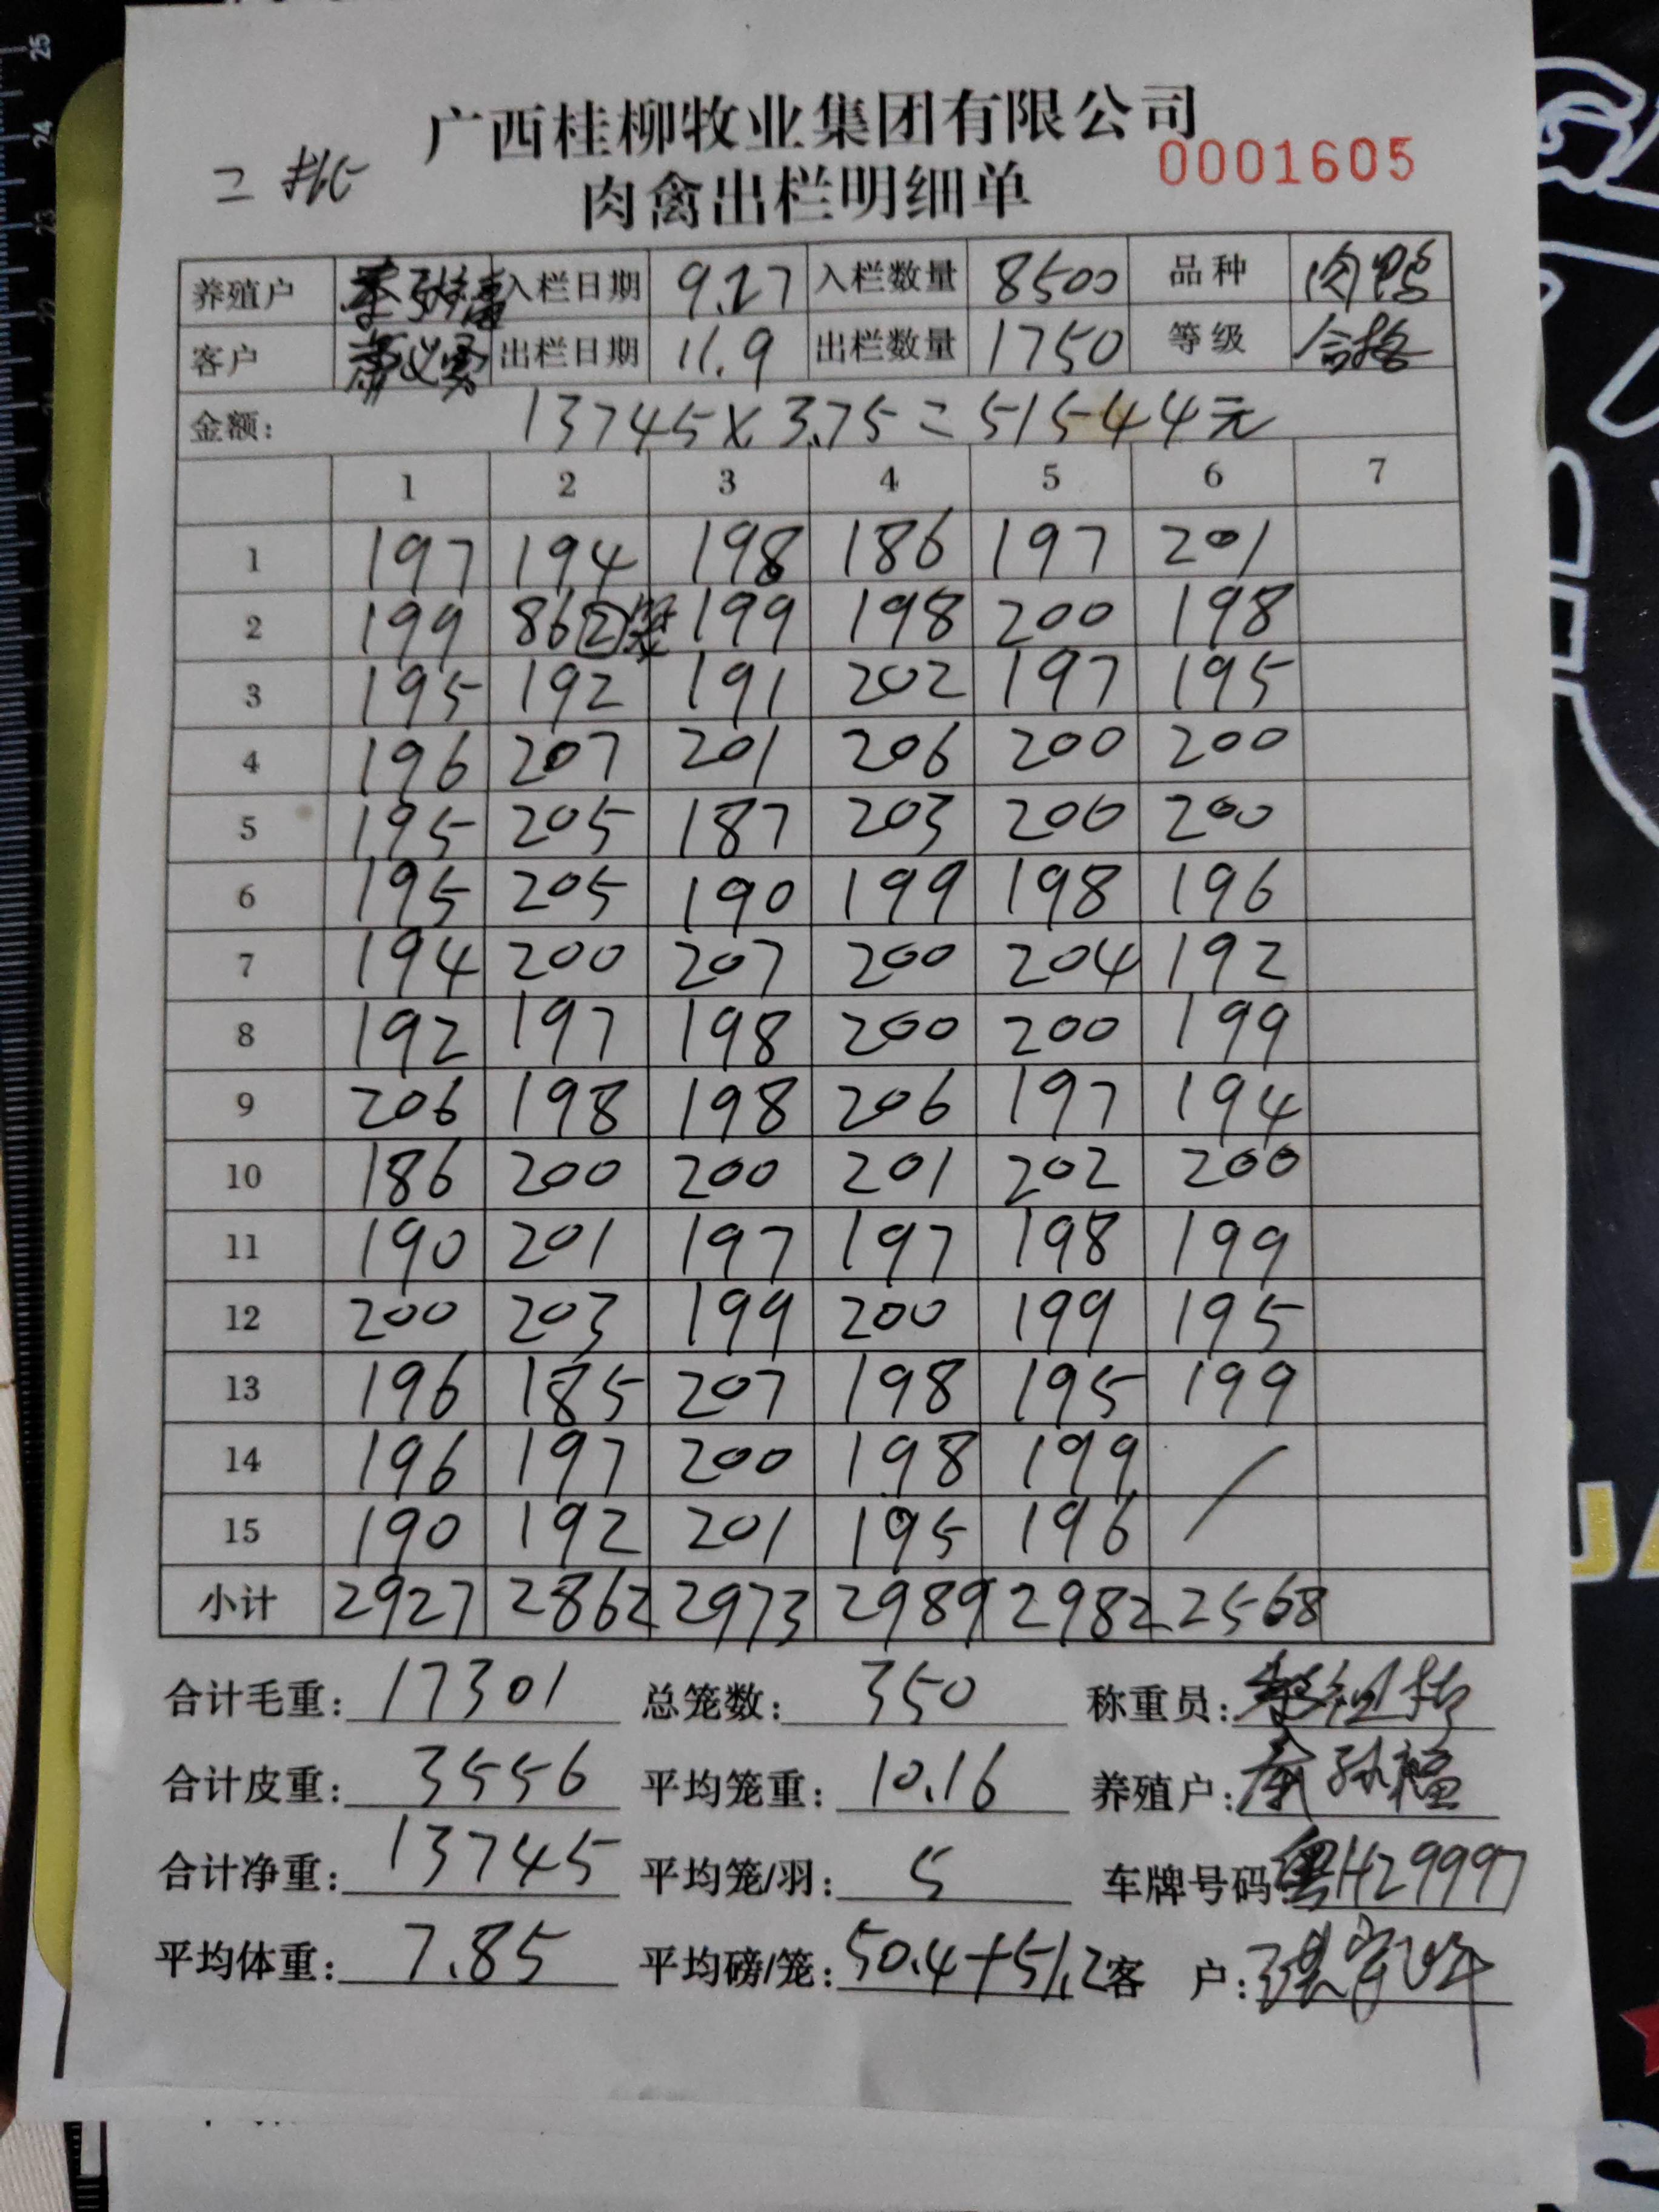 广西桂柳牧业集团有限公司
二批 肉禽出栏明细单 0001605
养殖户 入栏日期 9.27 入栏数量 8500 品种 肉鸭
客户 出栏日期 11.9 出栏数量 1750 等级 合格
金额: 13745×3.75=51544元
1 2 3 4 5 6 7
1 197 194 198 186 197 201
2 199 86②笼 199 198 200 198
3 195 192 191 202 197 195
4 196 207 201 206 200 200
5 195 205 187 203 200 200
6 195 205 190 199 198 196
7 194 200 207 200 204 192
8 192 197 198 200 200 199
9 206 198 198 206 197 194
10 186 200 200 201 202 200
11 190 201 197 197 198 199
12 200 203 199 200 199 195
13 196 185 207 198 195 199
14 196 197 200 198 199
15 190 192 201 195 196
小计 2927 2862 2973 2989 2982 2568
合计毛重: 17301 总笼数: 350 称重员:
合计皮重: 3556 平均笼重: 10.16 养殖户:
合计净重: 13745 平均笼/羽: 5 车牌号码 粤H29997
平均体重: 7.85 平均磅/笼: 50.4+51.2 客 户: